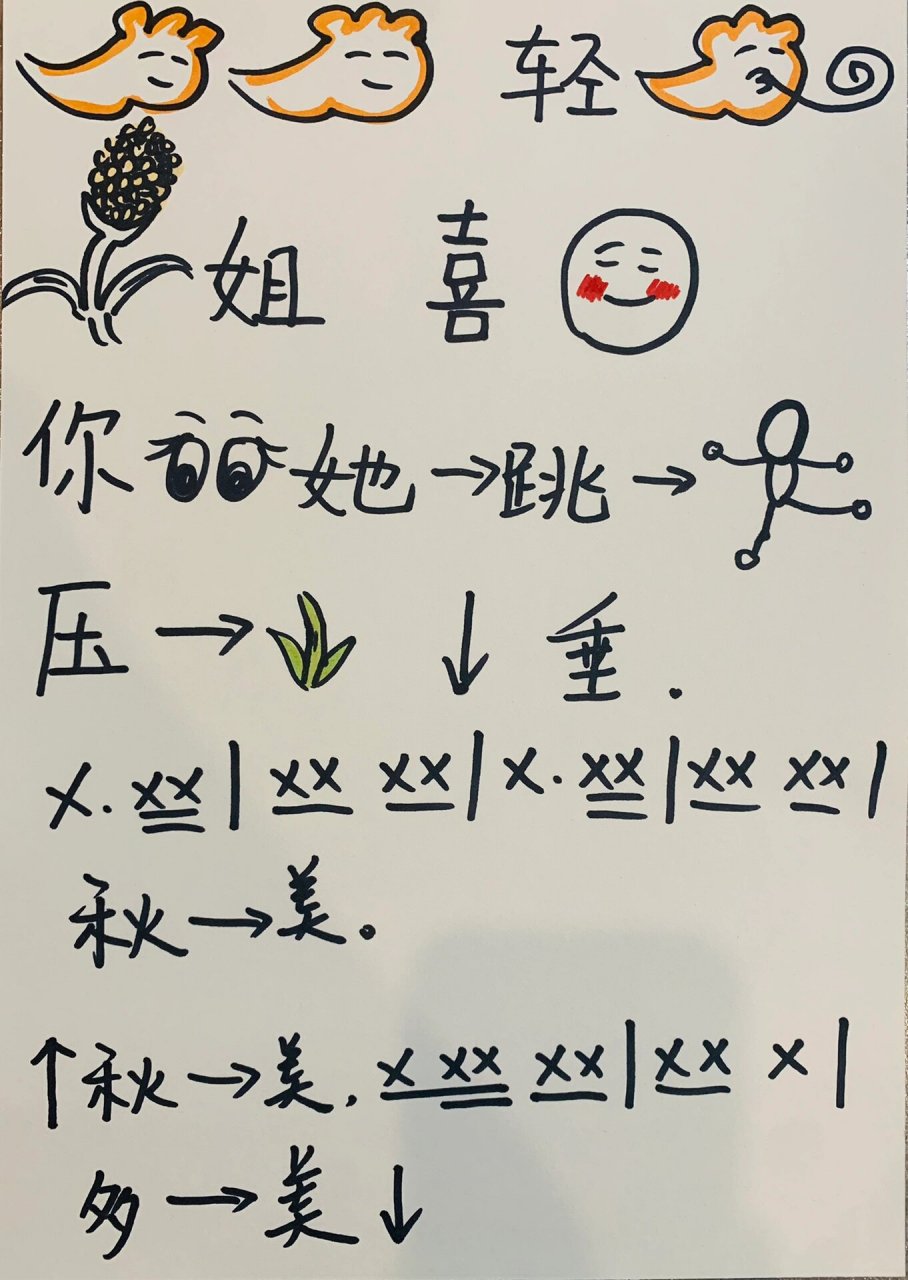 轻
姐 喜
你 她→跳→
压→ ↓ 垂.
X. XX | XX XX | X. XX | XX XX |
秋→美。
↑秋→美. X XX XX | XX X |
多→美↓